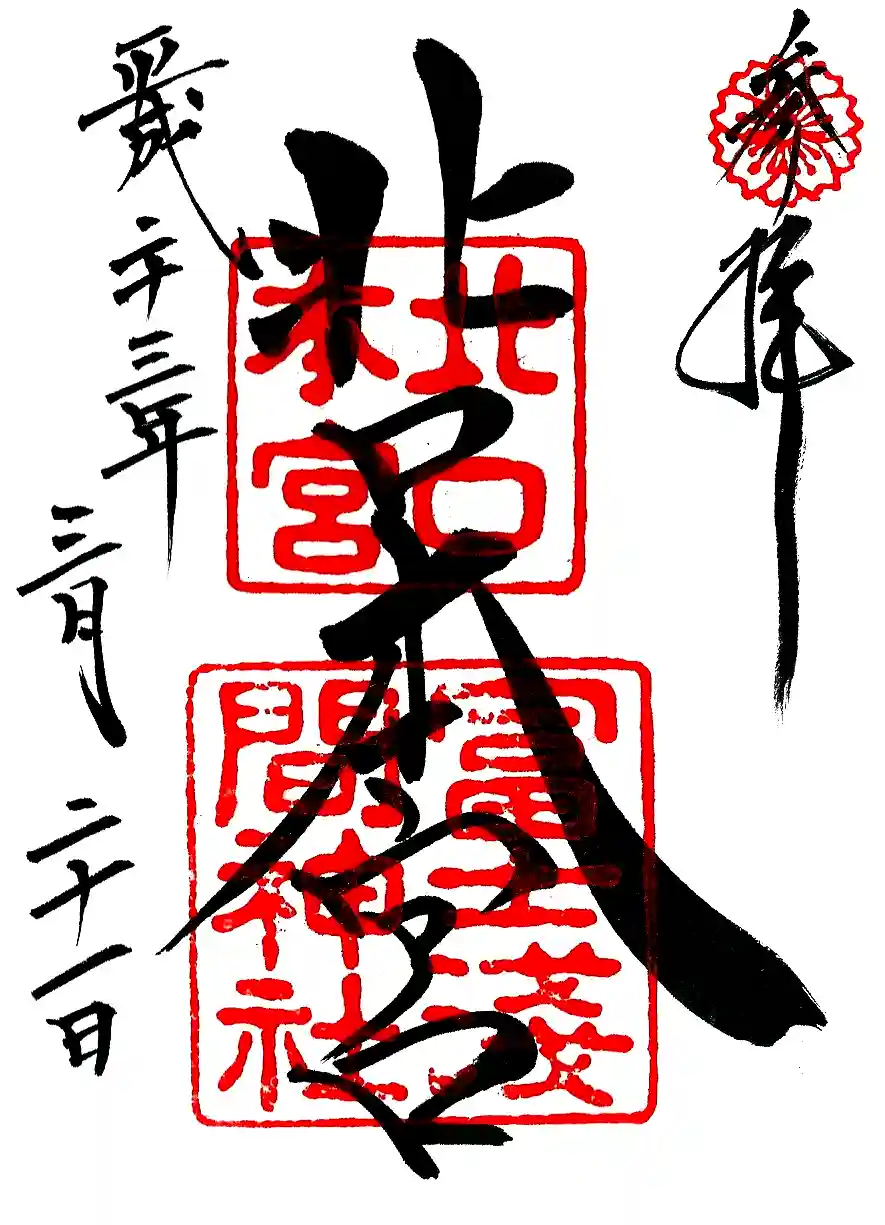 奉拝
北口本宮
北口
本宮
冨士淺
間神社
平成二十三年三月二十一日